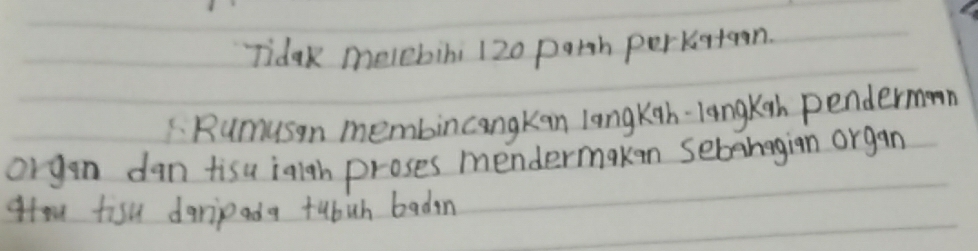 Tidak melebihi 120 patah perkataan.
Rumusan membincangkan langkah-langkah penderman
organ dan tisu ialah proses mendermakan sebahagian organ
atau tisu daripada tubuh badan